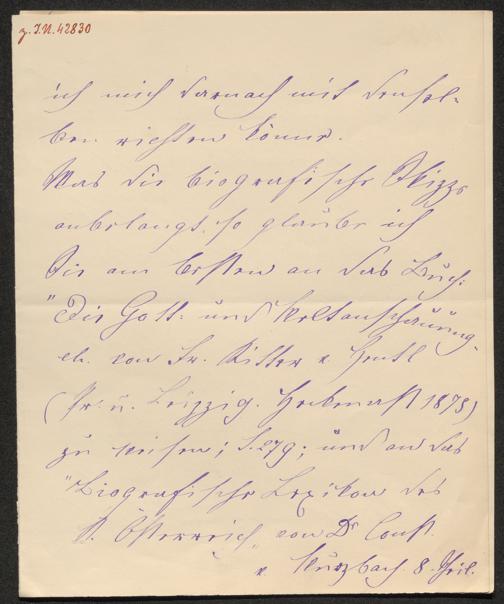 z. I.N. 42830
ich mich darnach mit densel-
ben richten könne.
Was die biografische Skizze
anbelangt, so glaube ich
Sie am besten an das Buch:
"Die Gott- und Weltanschauung-
von Fr. Ritter v. Hentl
(Pr. u. Leipzig. 1875)
zu weisen; S. 279; und an das
"Biografische Lexikon des
K. Österreich, von Dr Const.
v Wurzbach. 8. Theil.